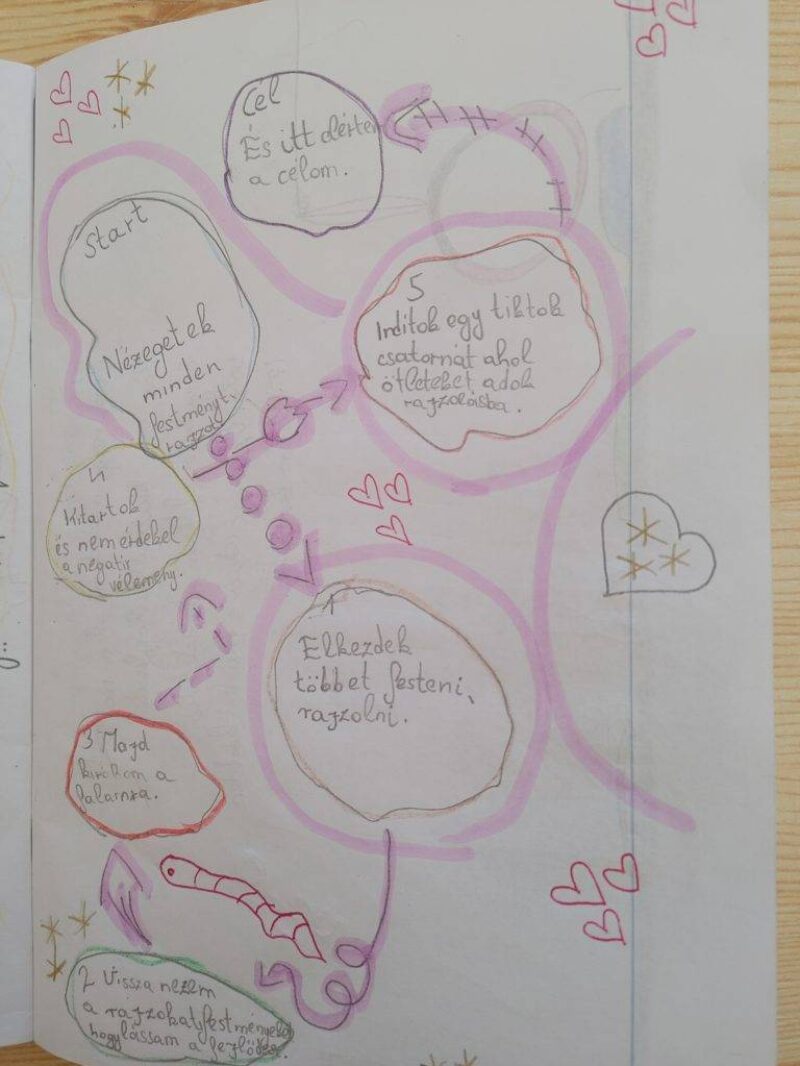 Start
Nézegetek
minden
festményt,
rajzot
1
Elkezdek
többet festeni,
rajzolni.
2 Vissza nézem
a rajzokat, festményeket
hogy lássam a fejlődést.
3 Majd
kirakom a
falamra.
4
Kitartok
és nem érdekel
a negatív
vélemény.
5
Inditok egy tiktok
csatornát ahol
ötleteket adok
rajzolásba.
Cél
És itt elértem
a célom.